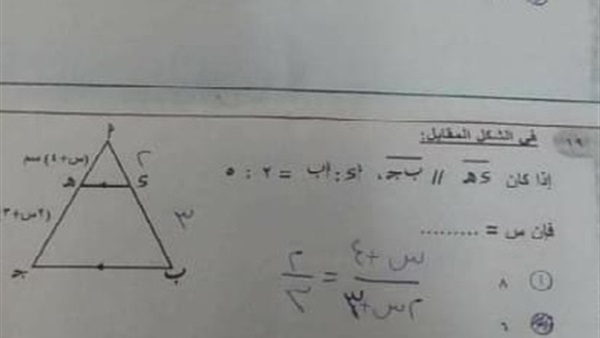 ١٩ في الشكل المقابل:
إذا كان د هـ // ب جـ، أ د : أ ب = ٢ : ٥
فإن س = .........
أ ٨
٦
أ
(س + ٤) سم
٢
هـ د
(٢س + ٣
٣
جـ ب
س + ٤ / ٢س + ٣ = ٢ / ٣